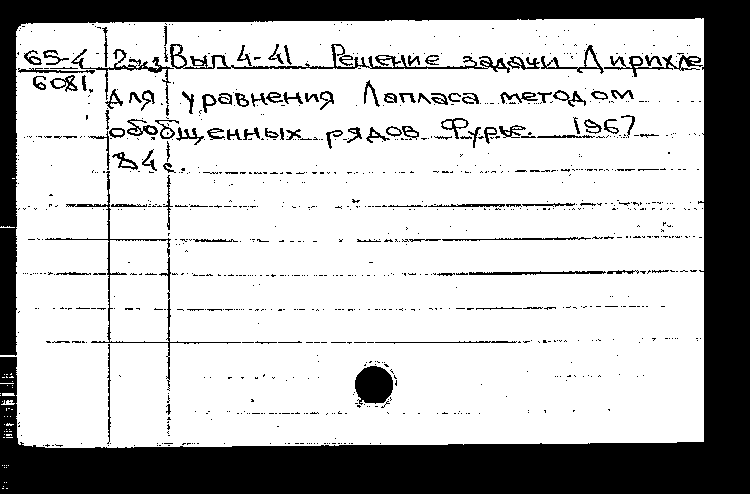 65-4 2экз Вып. 4-41. Решение задачи Дирихле
6081. для уравнения Лапласа методом
обобщенных рядов Фурье. 1967
84 с.